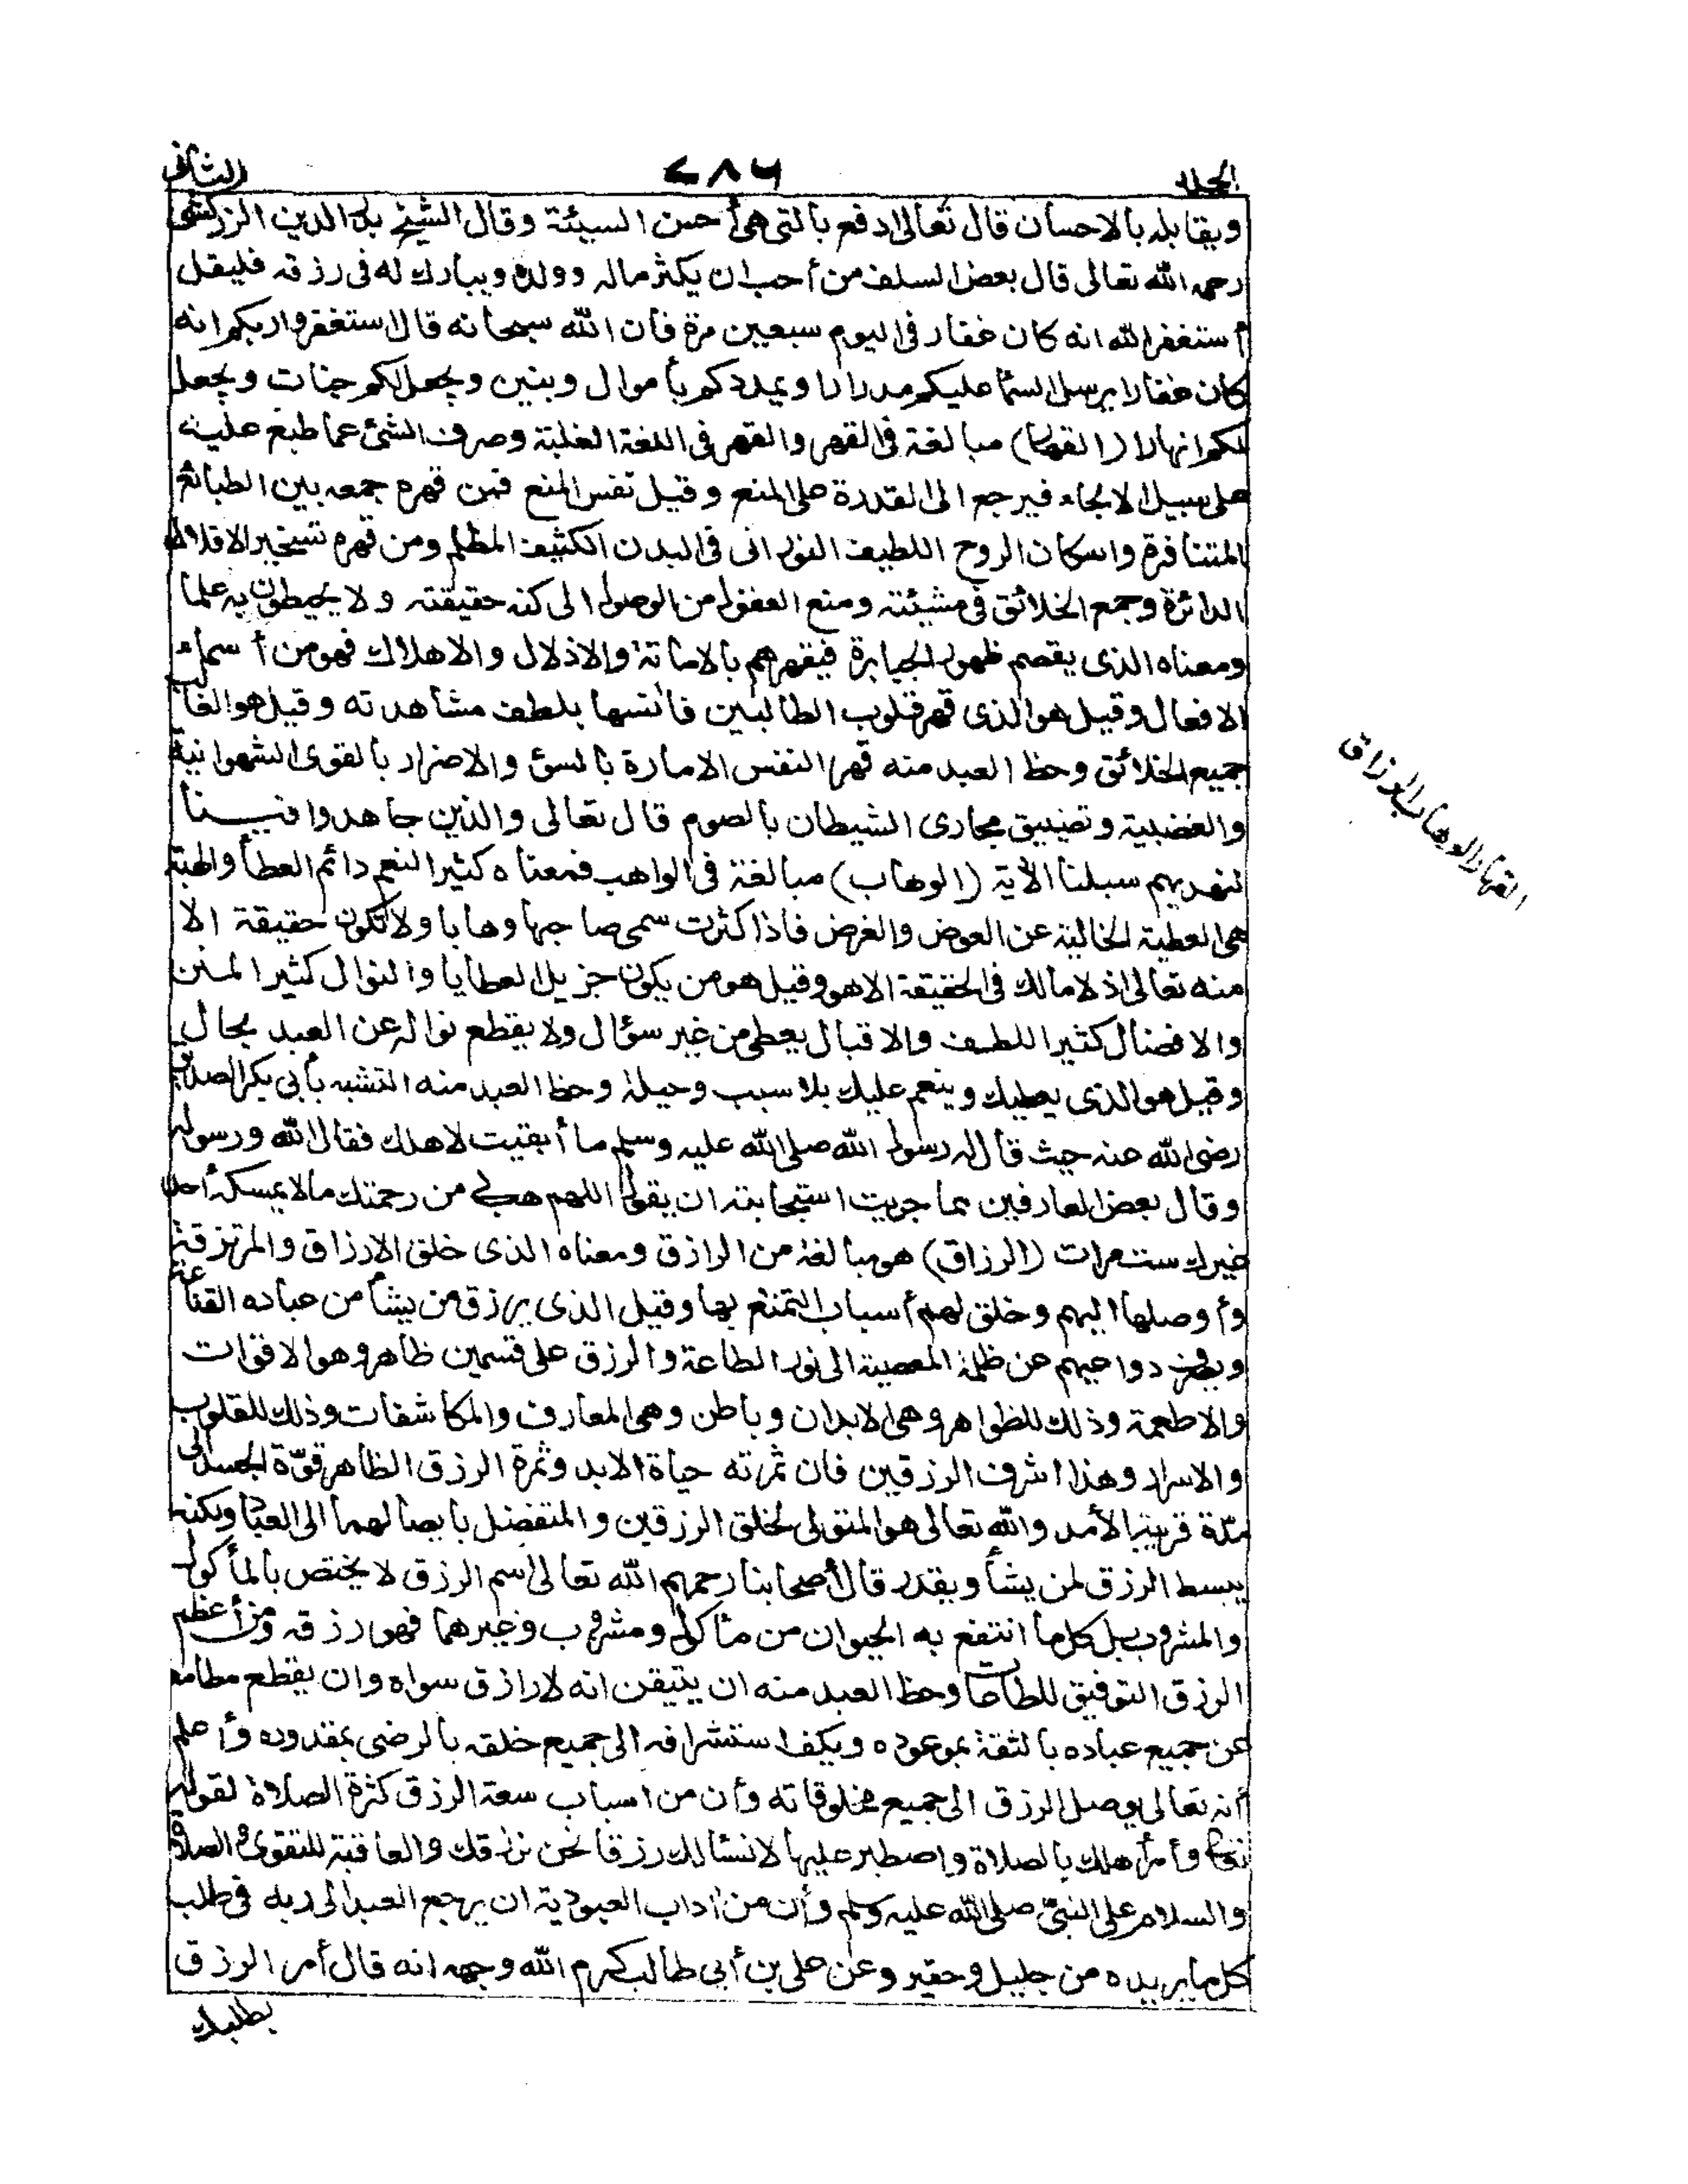 المجلد ٢٨٦ الثاني
ويقابله بالاحسان قال تعالى ادفع بالتى هى أحسن السيئة وقال الشيخ بدر الدين الزركشى
رحمه الله تعالى قال بعض السلف من أحب ان يكثر ماله وولده ويبارك له فى رزقه فليقل
أستغفر الله انه كان غفار فى اليوم سبعين مرة فان الله سبحانه قال استغفروا ربكم انه
كان غفارا يرسل السما عليكم مدرارا ويمددكم بأموال وبنين ويجعل لكم جنات ويجعل
لكم انهارا (القهار) مبالغة فى القهر والقهر فى اللغة الغلبة وصرف الشئ عما طبع عليه
على سبيل الالجاء فيرجع الى القدرة على المنع وقيل نفس المنع فمن قهره جمعه بين الطبائع
المتنافرة واسكان الروح اللطيف النورانى فى البدن الكثيف المظلم ومن قهره تسخير الافلاك
الدائرة وجمع الخلائق فى مشيئته ومنع العقول من الوصول الى كنه حقيقته ولا يحيطون به علما
ومعناه الذى يقصم ظهور الجبابرة فيقهرهم بالاماتة والاذلال والاهلاك فهو من أسماء
الافعال وقيل هو الذى قهر قلوب الطالبين فآنسها بلطف مشاهدته وقيل هو الغالب
جميع الخلائق وحظ العبد منه قهر النفس الامارة بالسوئ والاضرار بالقوى الشهوانية
والغضبية وتضييق مجارى الشيطان بالصوم قال تعالى والذين جاهدوا فينا
لنهدينهم سبلنا الآية (الوهاب) مبالغة فى الواهب فمعناه كثير النعم دائم العطأ والهبة
هى العطية الخالية عن العوض والغرض فاذا كثرت سمى صاحبها وهابا ولا تكون حقيقة الا
منه تعالى اذ لا مالك فى الحقيقة الا هو وقيل هو من يكون جزيل العطايا والنوال كثير المنن
والافضال كثير اللطف والاقبال يعطى من غير سؤال ولا يقطع نواله عن العبد بحال
وقيل هو الذى يعطيك وينعم عليك بلا سبب وحيلة وحظ العبد منه التشبه بأبى بكر الصديق
رضى الله عنه حيث قال له رسول الله صلى الله عليه وسلم ما أبقيت لاهلك فقال الله ورسوله
وقال بعض العارفين مما جربت استجابته ان يقول اللهم هب لى من رحمتك ما لا يمسكه أحد
غيرك ست مرات (الرزاق) هو مبالغة من الرازق ومعناه الذى خلق الارزاق والمرتزقة
وأوصلها اليهم وخلق لهم أسباب التمتع بها وقيل الذى يرزق من يشأ من عباده القناعة
ويصرف دواعيهم عن ظلمة المعصية الى نور الطاعة والرزق على قسمين ظاهر وهو الاقوات
والاطعمة وذلك للظواهر وهى الابدان وباطن وهى المعارف والمكاشفات وذلك للقلوب
والاسرار وهذا اشرف الرزقين فان ثمرته حياة الابد وثمرة الرزق الظاهر قوّة الجسد الى
مدّة قريبة الأمد والله تعالى هو المتولى لخلق الرزقين والمتفضل بايصالهما الى العباد ولكنه
يبسط الرزق لمن يشأ ويقدر قال أصحابنا رحمهم الله تعالى اسم الرزق لا يختص بالمأكول
والمشروب بل كل ما انتفع به الحيوان من مأكول ومشروب وغيرهما فهو رزقه ومن أعظم
الرزق التوفيق للطاعات وحظ العبد منه ان يتيقن انه لا رازق سواه وان يقطع مطامعه
عن جميع عباده بالثقة بموعوده ويكف استشرافه الى جميع خلقه بالرضى بمقدوره وأعلم
أنه تعالى يوصل الرزق الى جميع مخلوقاته وأن من اسباب سعة الرزق كثرة الصلاة لقوله
تعالى وأمر أهلك بالصلاة واصطبر عليها لا نسئالك رزقا نحن نرزقك والعاقبة للتقوى والصلاة
والسلام على النبىّ صلى الله عليه وسلم وأن من آداب العبودية ان يرجع العبد الى ربه فى طلب
كل ما يريده من جليل وحقير وعن على بن أبى طالب كرم الله وجهه انه قال أمر الرزق
بطلبك
القهار الوهاب الرزاق